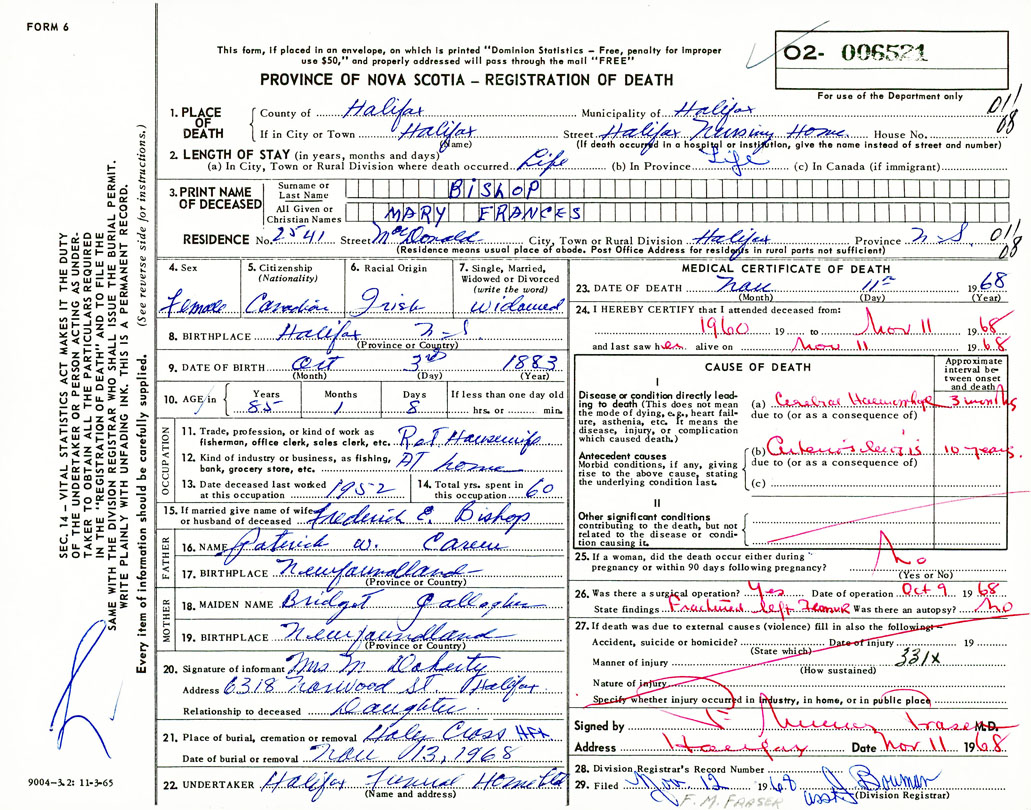 FORM 6
This form, if placed in an envelope, on which is printed "Dominion Statistics – Free, penalty for improper
use $50," and properly addressed will pass through the mail "FREE"
PROVINCE OF NOVA SCOTIA – REGISTRATION OF DEATH
O2- 006521
For use of the Department only
011
08
1. PLACE OF DEATH
County of Halifax Municipality of Halifax
If in City or Town Halifax Street Halifax Nursing Home House No.
(Name) (If death occurred in a hospital or institution, give the name instead of street and number)
2. LENGTH OF STAY (in years, months and days)
(a) In City, Town or Rural Division where death occurred Life (b) In Province Life (c) In Canada (if immigrant)
3. PRINT NAME OF DECEASED
Surname or Last Name BISHOP
All Given or Christian Names MARY FRANCES
RESIDENCE No. 2541 Street McDonald City, Town or Rural Division Halifax Province N.S.
(Residence means usual place of abode. Post Office Address for residents in rural parts not sufficient)
011
08
4. Sex Female
5. Citizenship (Nationality) Canadian
6. Racial Origin Irish
7. Single, Married, Widowed or Divorced (write the word) Widowed
8. BIRTHPLACE Halifax N-S
(Province or Country)
9. DATE OF BIRTH Oct 3rd 1883
(Month) (Day) (Year)
10. AGE in Years 85 Months 1 Days 8 If less than one day old hrs. or min.
OCCUPATION
11. Trade, profession, or kind of work as
fisherman, office clerk, sales clerk, etc. Ret Housewife
12. Kind of industry or business, as fishing,
bank, grocery store, etc. AT home
13. Date deceased last worked
at this occupation 1952
14. Total yrs. spent in
this occupation 60
15. If married give name of wife
or husband of deceased Frederick E. Bishop
FATHER
16. NAME Patrick W. Careen
17. BIRTHPLACE Newfoundland
(Province or Country)
MOTHER
18. MAIDEN NAME Bridget Gallagher
19. BIRTHPLACE Newfoundland
(Province or Country)
20. Signature of informant Mrs. M. Doherty
Address 6318 Norwood St Halifax
Relationship to deceased Daughter
21. Place of burial, cremation or removal Holy Cross Hfx
Date of burial or removal Nov 13, 1968
22. UNDERTAKER Halifax Funeral Home Ltd
(Name and address)
MEDICAL CERTIFICATE OF DEATH
23. DATE OF DEATH Nov 11th 1968
(Month) (Day) (Year)
24. I HEREBY CERTIFY that I attended deceased from:
1960 19 to Nov 11 1968
and last saw her alive on Nov 11 1968
CAUSE OF DEATH
Approximate interval between onset and death
I
Disease or condition directly leading
to death (This does not mean
the mode of dying, e.g., heart failure,
asthenia, etc. It means the
disease, injury, or complication
which caused death.)
(a) Cerebral Haemorrhage 3 months
due to (or as a consequence of)
Antecedent causes
Morbid conditions, if any, giving
rise to the above cause, stating
the underlying condition last.
(b) Arteriosclerosis 10 years.
due to (or as a consequence of)
(c)
II
Other significant conditions
contributing to the death, but not
related to the disease or condition
causing it.
25. If a woman, did the death occur either during
pregnancy or within 90 days following pregnancy? No
(Yes or No)
26. Was there a surgical operation? Yes Date of operation Oct 9 1968
State findings Fractured left Femur Was there an autopsy? No
27. If death was due to external causes (violence) fill in also the following:—
Accident, suicide or homicide? Date of injury 19
(State which)
Manner of injury 331X
(How sustained)
Nature of injury
Specify whether injury occurred in industry, in home, or in public place
Signed by F Murray Fraser M.D.
Address Halifax Date Nov 11 1968
28. Division Registrar's Record Number
29. Filed Nov. 12 1968 J Bowman
asst (Division Registrar)
F. M. FRASER
SEC. 14 – VITAL STATISTICS ACT MAKES IT THE DUTY
OF THE UNDERTAKER OR PERSON ACTING AS UNDER-
TAKER TO OBTAIN ALL THE PARTICULARS REQUIRED
IN THE "REGISTRATION OF DEATH" AND TO FILE THE
SAME WITH THE DIVISION REGISTRAR WHO SHALL ISSUE THE BURIAL PERMIT.
WRITE PLAINLY WITH UNFADING INK. THIS IS A PERMANENT RECORD.
Every item of information should be carefully supplied. (See reverse side for instructions.)
9004–3.2: 11-3-65